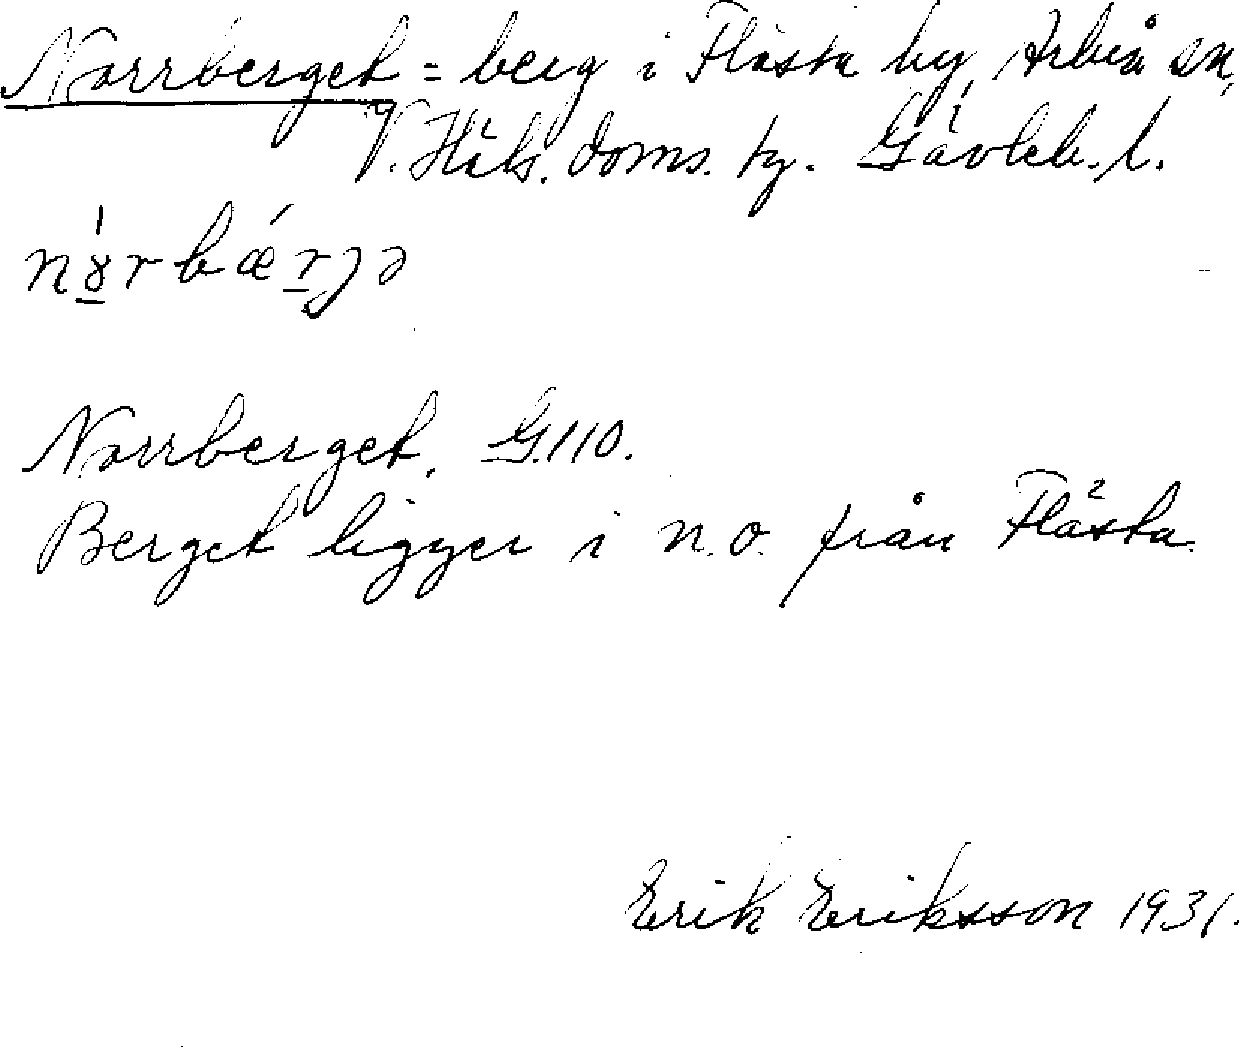 Norrberget = berg i Flästa by, Arbrå sn,
V. Häls. doms. tg. Gävleb. l.
nɤ̠̀rbǽr̠jə
Norrberget. G.110.
Berget ligger i n.o. från Flästa.
Erik Eriksson 1931.